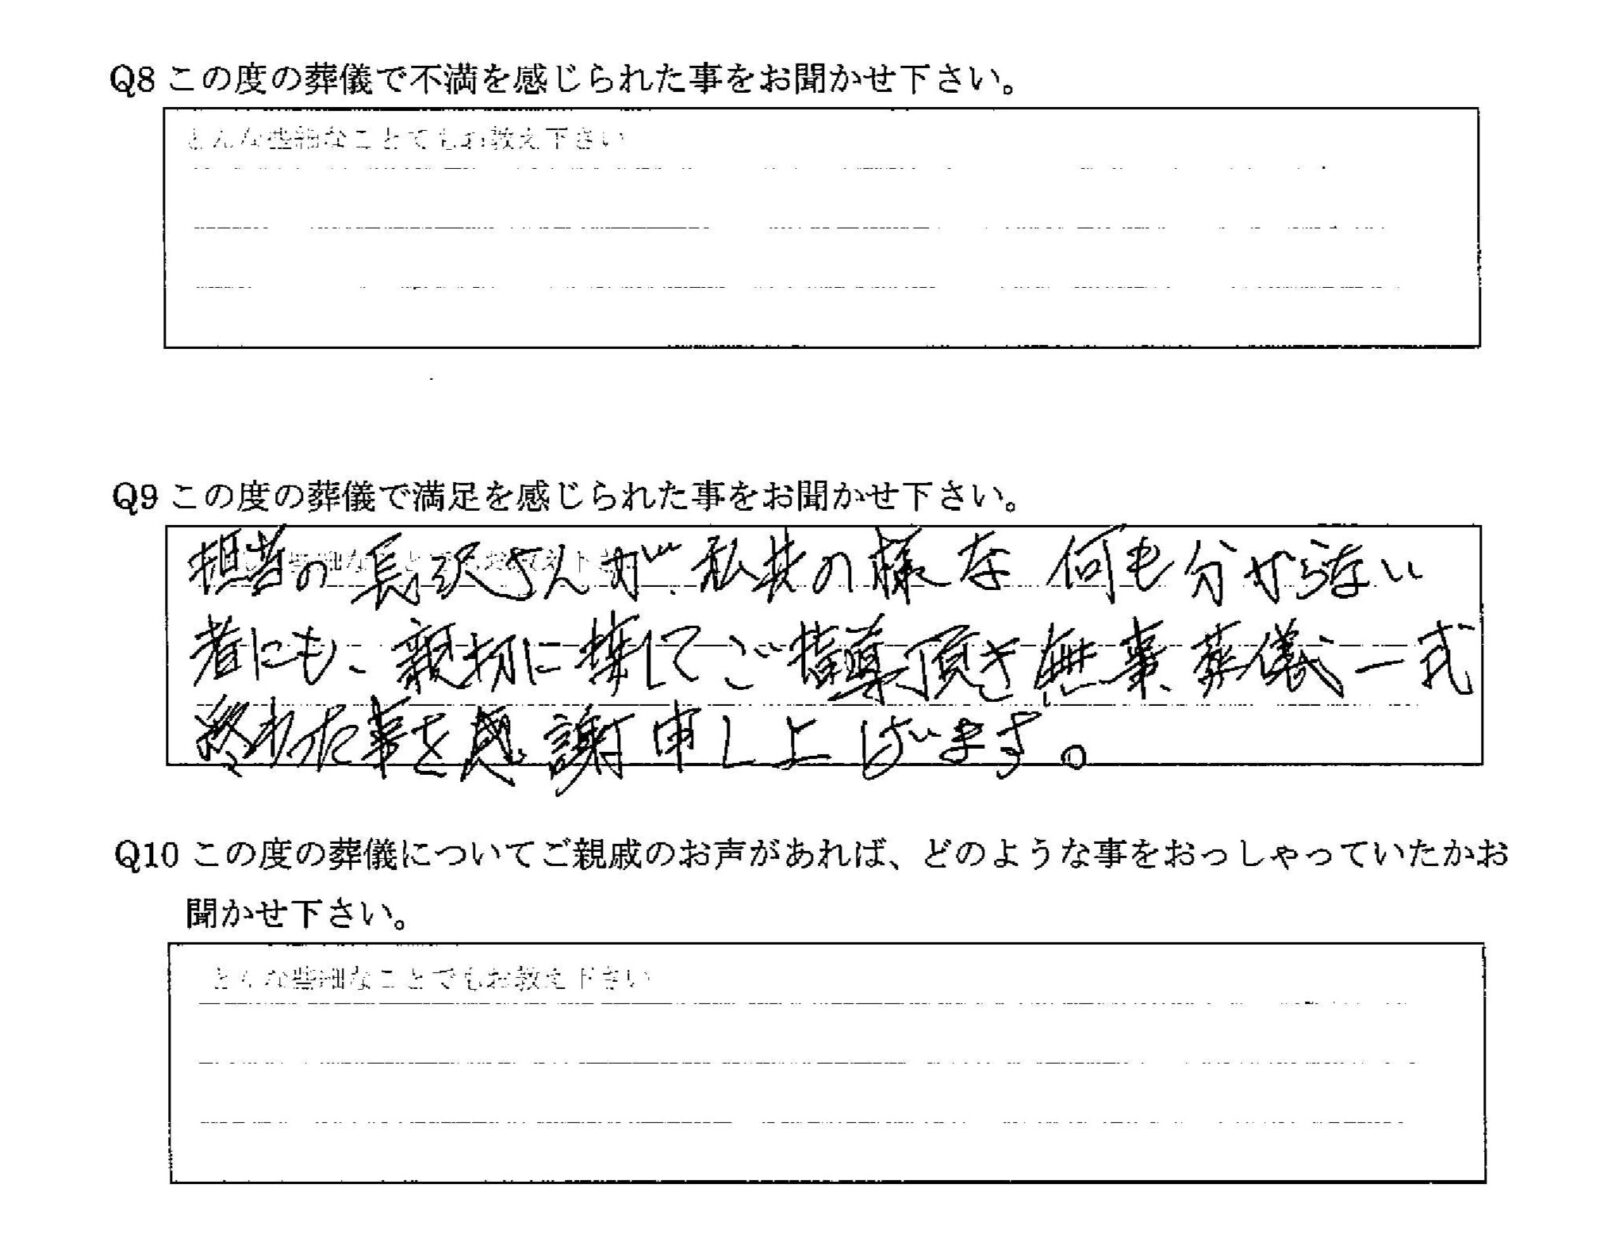 Q8 この度の葬儀で不満を感じられた事をお聞かせ下さい。
どんな些細なことでもお教え下さい
Q9 この度の葬儀で満足を感じられた事をお聞かせ下さい。
担者の長沢さんが、私共の様な何も分からない
者にも、親切に接してご指導頂き無事葬儀一式
終わった事を感謝申し上げます。
Q10 この度の葬儀についてご親戚のお声があれば、どのような事をおっしゃっていたかお
聞かせ下さい。
どんな些細なことでもお教え下さい